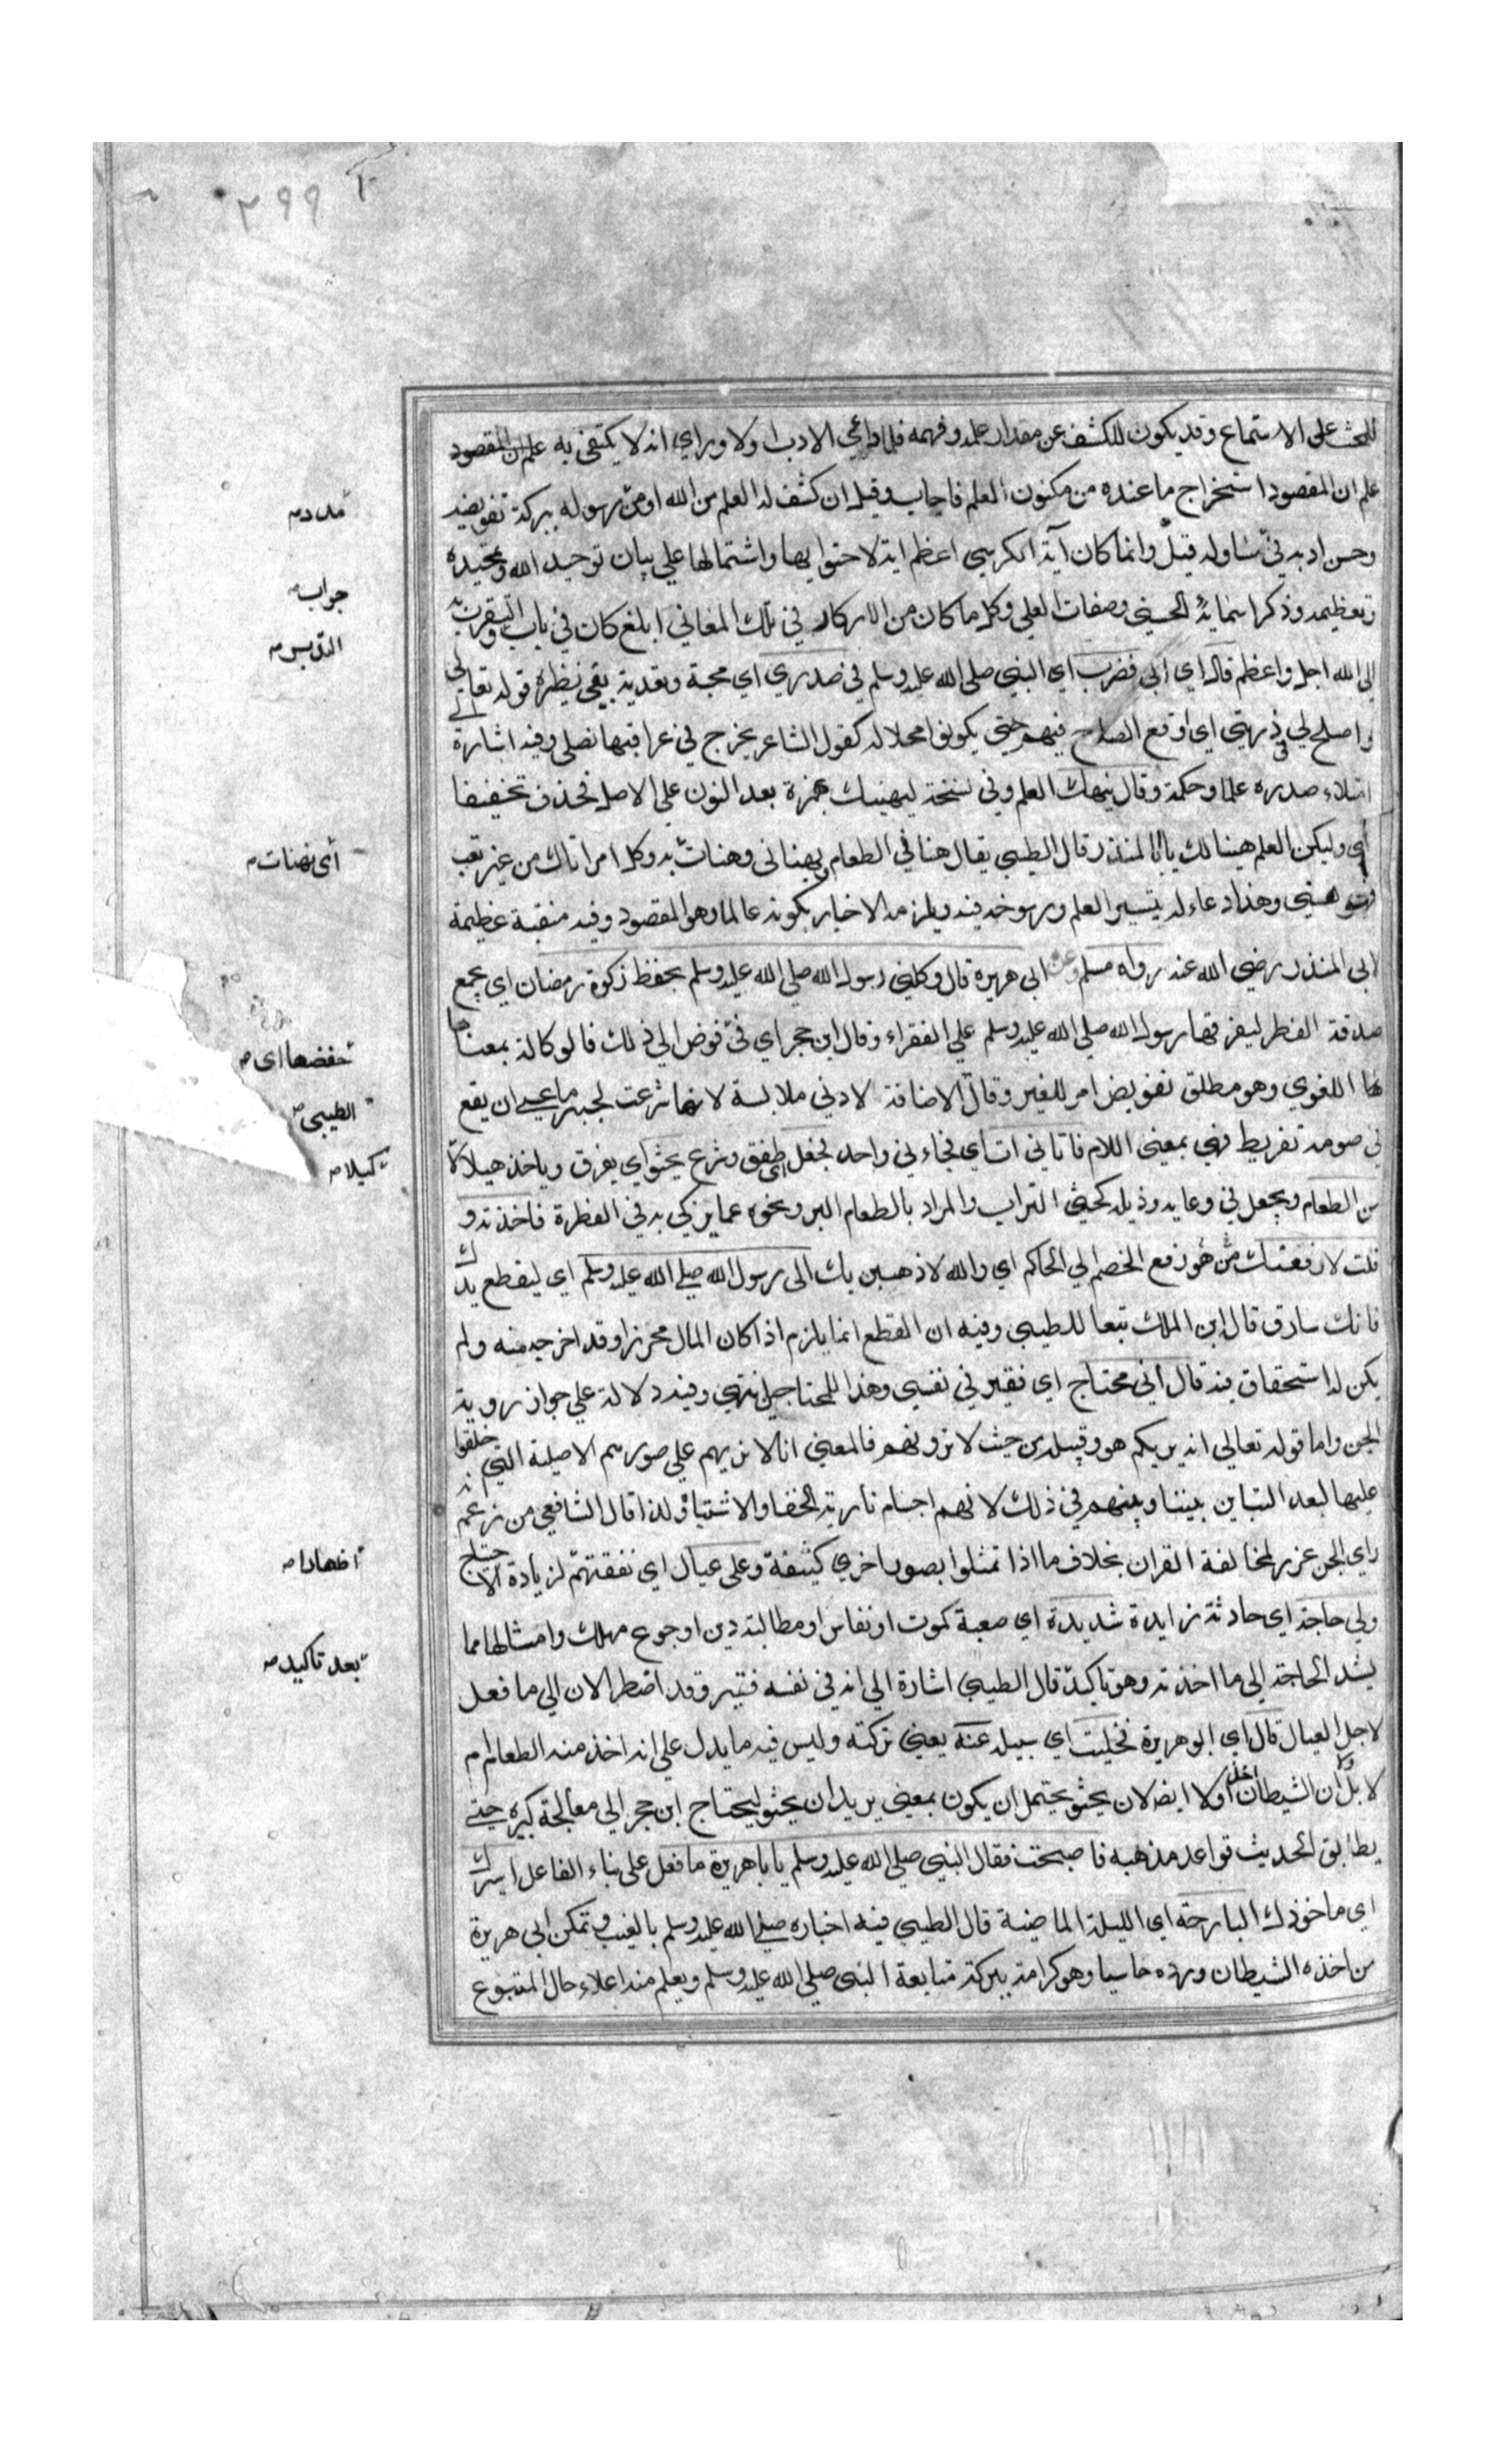 ٢٩٩
للحث على الاستماع وقد يكون للكشف عن مقدار علمه وفهمه فلما داعي الادب اولا وراي انه لا يكتفى به علم ان المقصود
علم ان المقصود استخراج ما عنده من مكنون العلم فاجاب وقيل ان كشف له العلم من الله او من رسوله ببركة تفويضه
وحسن ادبه في تساوله قيل وانما كان آية الكرسي اعظم اية لاحتوايها واشتمالها علي بيان توحيد الله وتمجيده
وتعظيمه وذكر اسمايه الحسني وصفات العلي وكل ما كان من الاركار في تلك المعاني ابلغ كان في باب التقرب به
الي الله اجل واعظم قال اي ابي فضرب اي النبي صلي الله عليه وسلم في صدري اي محبة وتعدية بفي نظيره قوله تعالي
واصلح لي في ذريتي اي اوقع الصلاح فيهم حتي يكونوا محلا له كقول الشاعر يخرج في عراقيبها نصلي وفيه اشارة الي
امتلاء صدره علما وحكمة وقال ليهنك العلم وفي نسخة ليهنيك بهمزة بعد النون علي الاصل فحذف تخفيفا
اي وليكن العلم هنيئا لك يا ابا المنذر قال الطيبي يقال هنا في الطعام ويهناني وهنات به وكل امر اتاك من غير تعب
فهو هني وهذا دعاء له بتيسير العلم ورسوخه فيه ويلزمه الاخبار بكونه عالما وهو المقصود وفيه منقبة عظيمة
لابي المنذر رضي الله عنه رواه مسلم وعن ابي هريرة قال وكلني رسول الله صلي الله عليه وسلم بحفظ زكوة رمضان اي بجمع
صدقة الفطر ليفرقها رسول الله صلي الله عليه وسلم علي الفقراء وقال ابن حجر اي في فوض الي ذلك فالوكالة بمعنا
ها اللغوي وهو مطلق تفويض امر للغير وقال الاضافة لادني ملابسة لانها شرعت لجبر ما عسي ان يقع
في صومه تفريط فهي بمعني اللام فاتاني ات اي فجاءني واحد فجعل اي طفق وشرع يحثو اي يغرف وياخذ هيلا لا
من الطعام ويجعل في وعايه وذيله كحثي التراب والمراد بالطعام البر ونحوه مما يزكي به في الفطرة فاخذته و
قلت لارفعنك من هو رفع الخصم الي الحاكم اي والله لاذهبن بك الى رسول الله صلي الله عليه وسلم اي ليقطع يدك
فانك سارق قال ابن الملك تبعا للطيبي وفيه ان القطع انما يلزم اذا كان المال محرزا وقد اخرجه منه ولم
يكن له استحقاق فيه قال اني محتاج اي فقير في نفسي وهذا للمحتاجين انتهي وفيه دلالة علي جواز روية
الجن واما قوله تعالي انه يريكم هو وقبيله من حيث لا ترونهم فالمعني انا لا نريهم علي صورهم الاصلية التي خلقوا
عليها لبعد التباين بيننا وبينهم في ذلك لانهم اجسام نارية الخفا والاشتباه ولذا قال الشافعي من زعم
راي الجن عزر لمخالفة القران بخلاف ما اذا تمثلوا بصور اخري كثيفة وعلى عيال اي نفقتهم لزيادة الاحتياج
ولي حاجة اي حادثة زايدة شديدة اي صعبة كموت او نفاس او مطالبة دين او جوع مهلك وامثالها مما
يشد الحاجة الي ما اخذته وهو تاكيد قال الطيبي اشارة الي انه في نفسه فقير وقد اضطر الان الي ما فعل
لاجل العيال قال اي ابو هريرة فخليت اي سبيله عنه يعني تركته وليس فيه ما يدل علي انه اخذ منه الطعام ام
لا بل ان الشيطان اخذ اولا ايضا لان يحثو يحتمل ان يكون بمعني يريد ان يحثو ليحتاج ابن حجر الي معالجة كبيرة حتي
يطابق الحديث قواعد مذهبه فاصبحت فقال النبي صلي الله عليه وسلم يا باهريرة ما فعل علي بناء الفاعل اسيرك
اي ماخوذك البارحة اي الليلة الماضية قال الطيبي فيه اخباره صلي الله عليه وسلم بالغيب وتمكن ابي هريرة
من اخذه الشيطان ورده خاسيا وهو كرامة ببركة متابعة النبي صلي الله عليه وسلم ويعلم منه اعلاء حال المتبوع
مدد
جواب
اي تهنات
حفضها اي
الطيبي
كيلا
اظهارا
بعد تاكيد